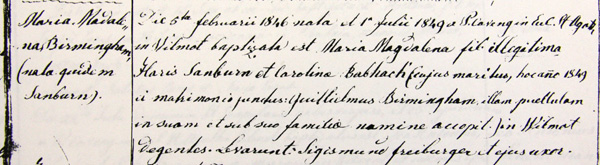 Maria Magdale=
na Birmingham,
(nata quidem
Sanburn).
Die 5ta februarii 1846 nata et 1a Julii 1849 a
in Wilmot baptizata est Maria Magdalena fil. illegitima
Haris Sanburn et Carolinæ Babhach cujus maritus, hoc año 1849
ii matrimonio junctus: Guillielmus Birmingham, illam puellulam
in suam et sub suo familiæ nomine accepit. in Wilmot
degentes. Levarunt. Sigismund freiburger et ejus uxor.